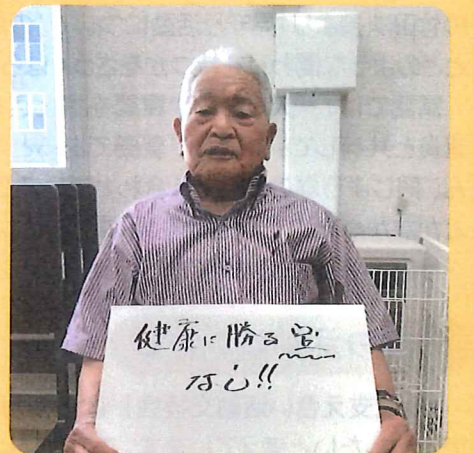 健康に勝る宝
なし!!